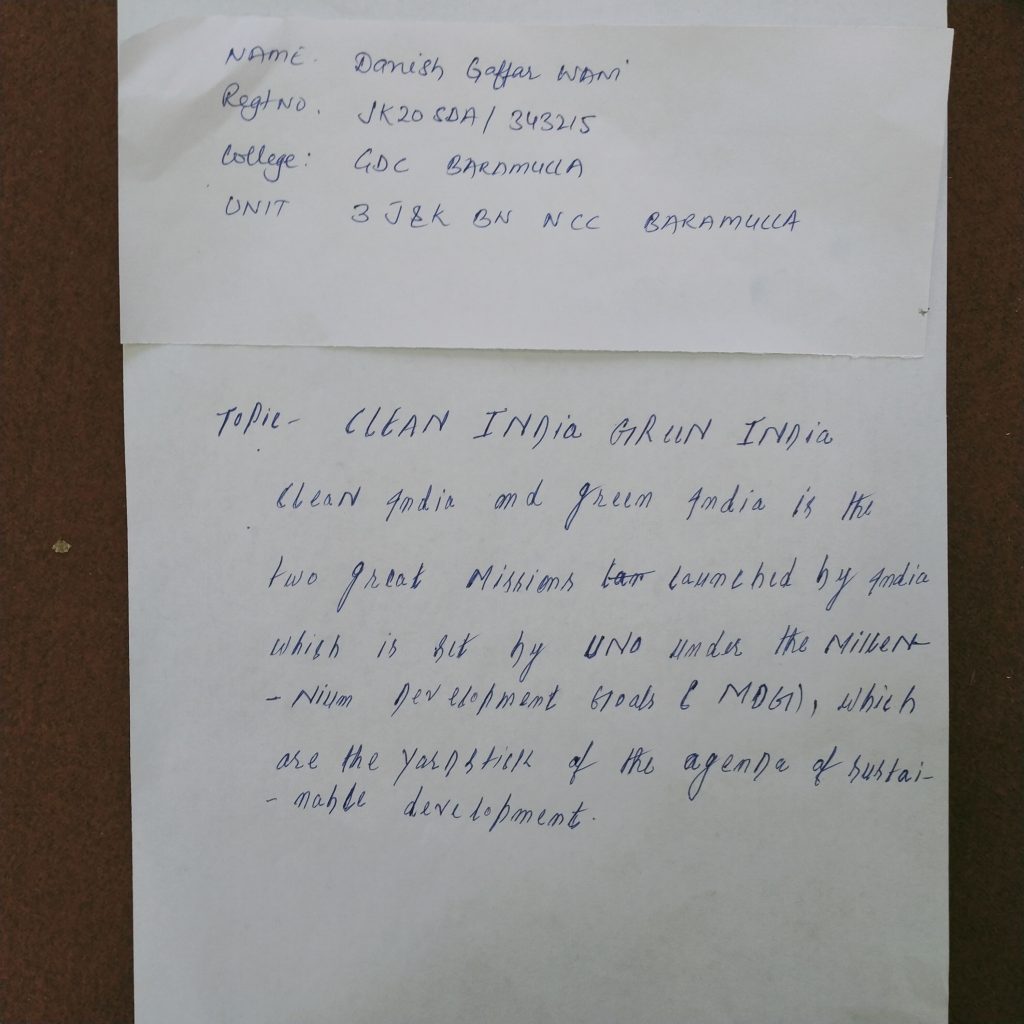 NAME. Danish Gaffar WANI
Regt NO. JK20 SDA/ 343215
College: GDC BARAMULLA
UNIT 3 J&K BN NCC BARAMULLA
Topic- CLEAN INDia GREEN INDia
Clean India and green India is the
two great Missions launched by India
which is set by UNO under the Millen
- Nium Development Goals ( MDG), which
are the YarDstick of the agenDa of sustai-
- nable development.